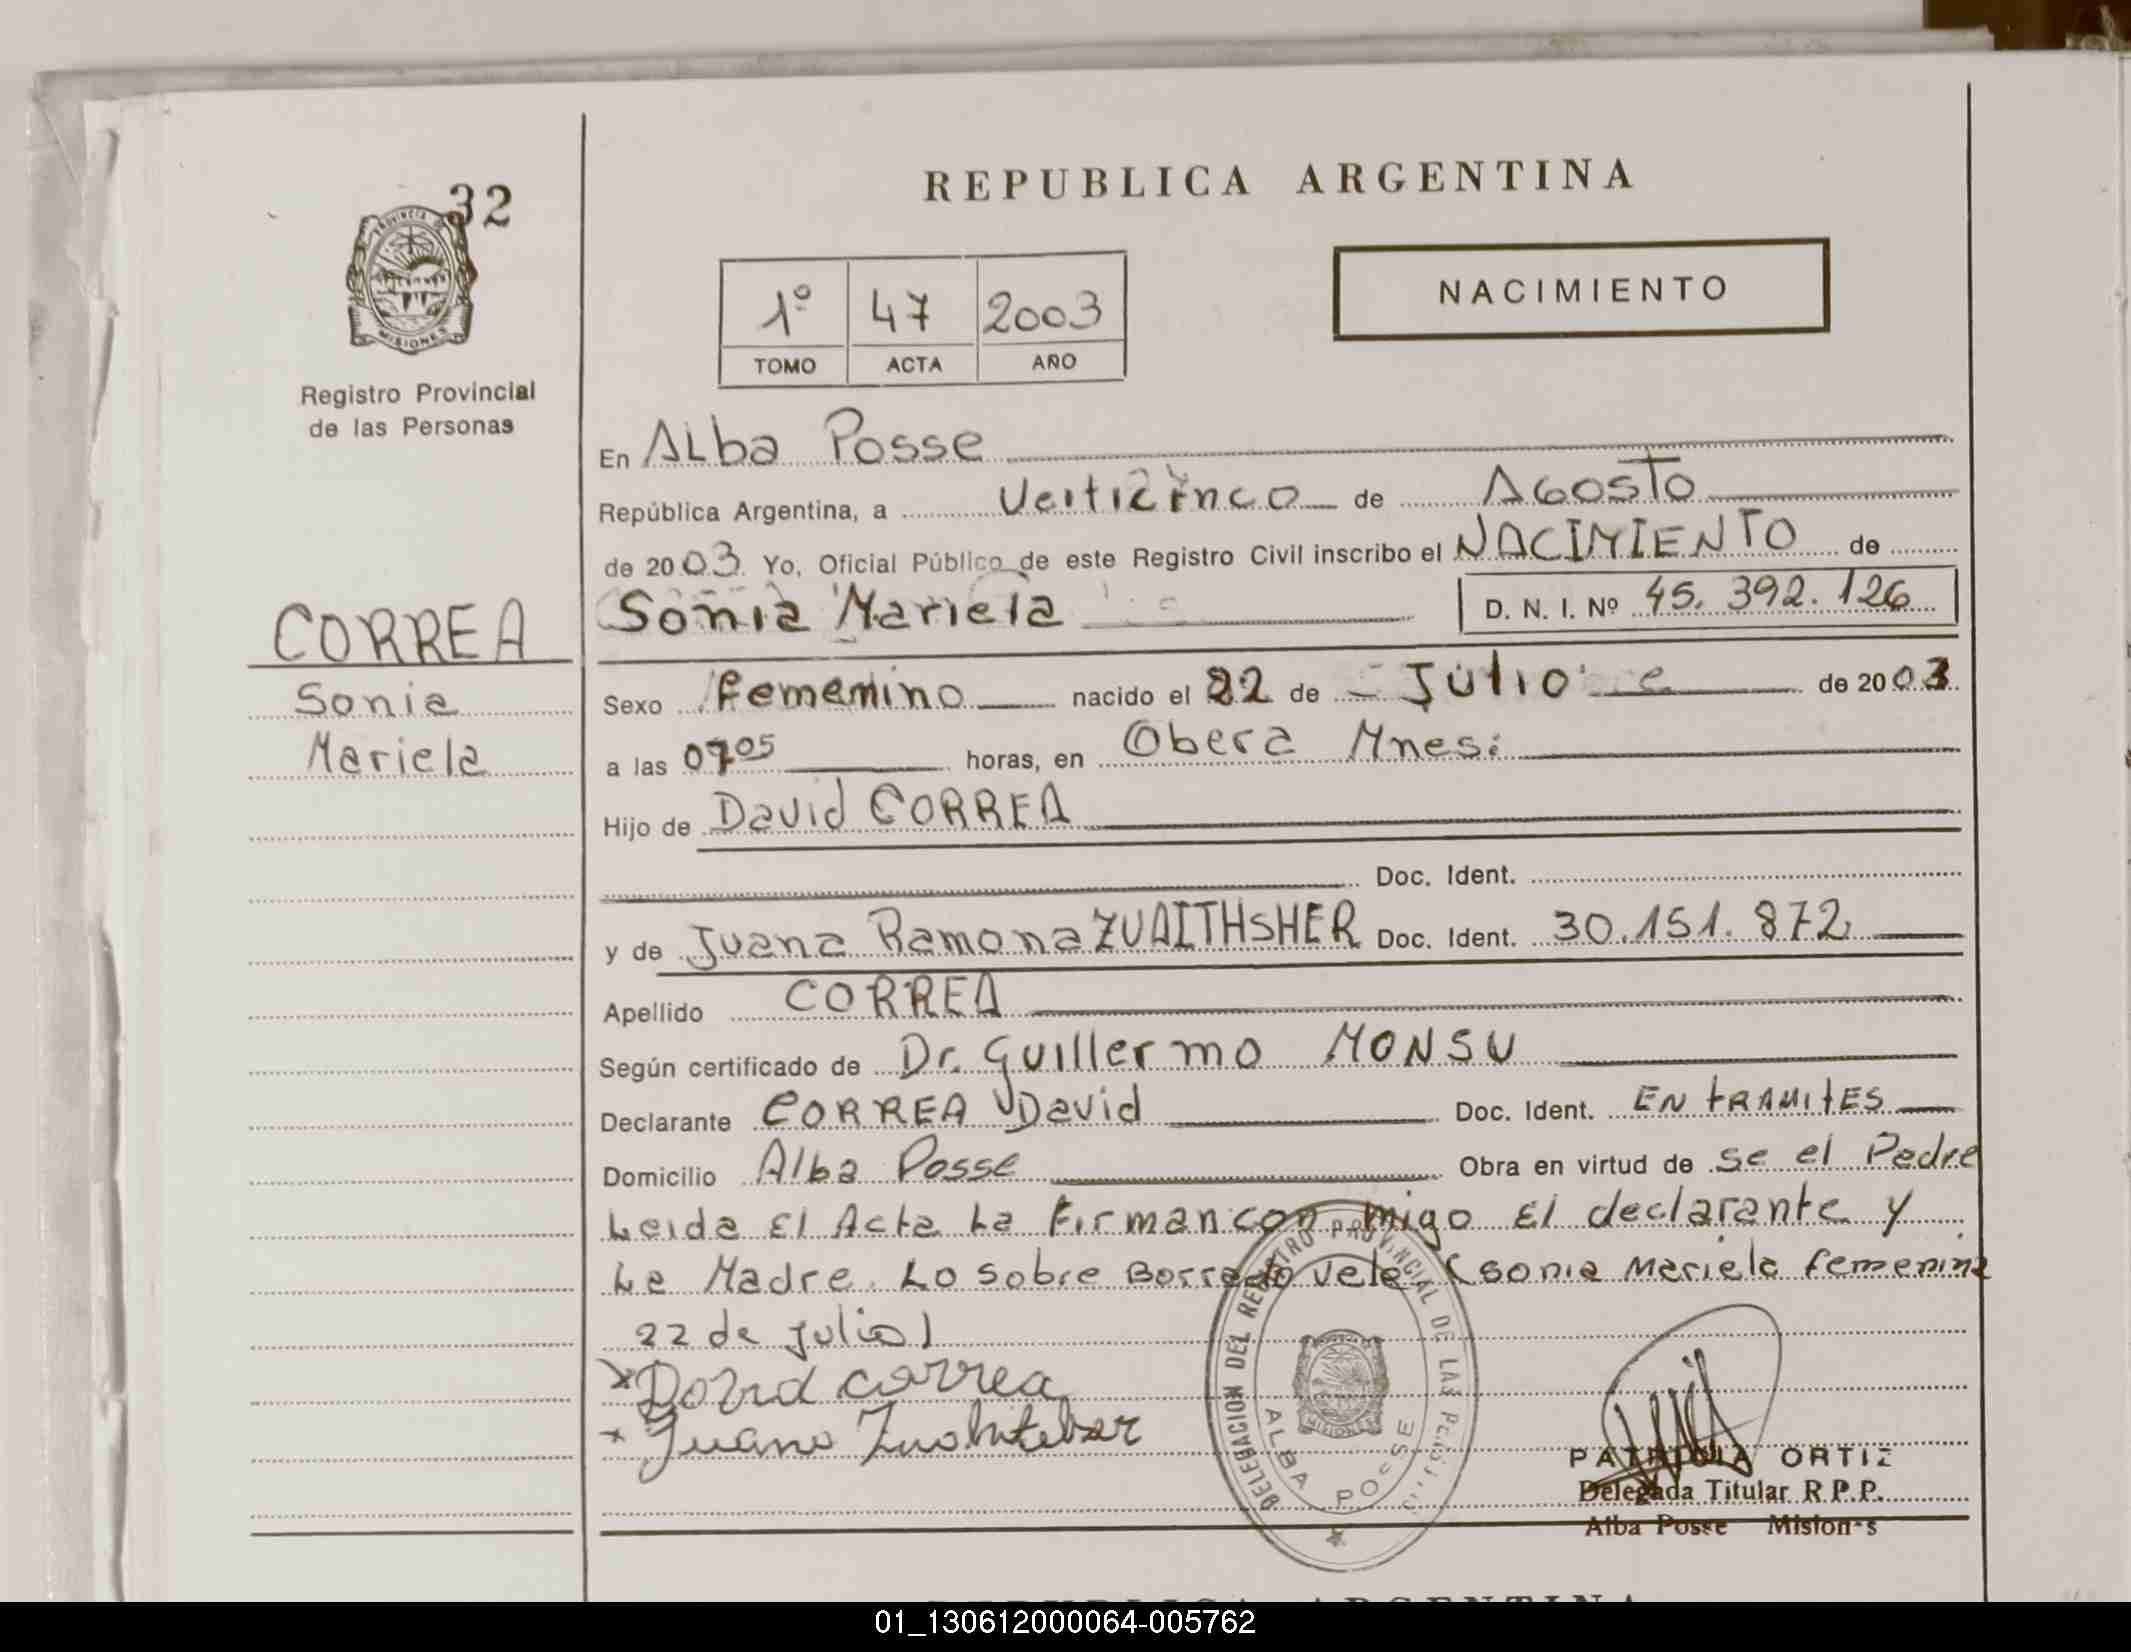 32
PROVINCIA DE
MISIONES
Registro Provincial
de las Personas
REPUBLICA ARGENTINA
1º 47 2003
TOMO ACTA AÑO
NACIMIENTO
En ALba Posse
República Argentina, a Veiticinco de AGOSTO
de 2003. Yo, Oficial Público de este Registro Civil inscribo el NACIMIENTO de
CORREA
Sonia
Mariela
Sonia Mariela D. N. I. Nº 45.392.126
Sexo Femenino nacido el 22 de Julio de 2003
a las 07 05 horas, en Obera Mnes:
Hijo de David CORREA
Doc. Ident.
y de Juana Ramona ZUAITHSHER Doc. Ident. 30.151.872
Apellido CORREA
Según certificado de Dr. Guillermo MONSU
Declarante CORREA David Doc. Ident. EN tRAMItES
Domicilio Alba Posse Obra en virtud de se el Padre
Leida El Acta La Firman con migo El declarante y
La Madre. Lo sobre Borrado vele (sonia Mariela femenina
22 de julio)
x David correa
x Juana
DELEGACION DEL REGISTRO PROVINCIAL DE LAS PERSONAS
ALBA POSSE
MISIONES
PATRICIA ORTIZ
Delegada Titular R.P.P.
Alba Posse Misiones
01_130612000064-005762